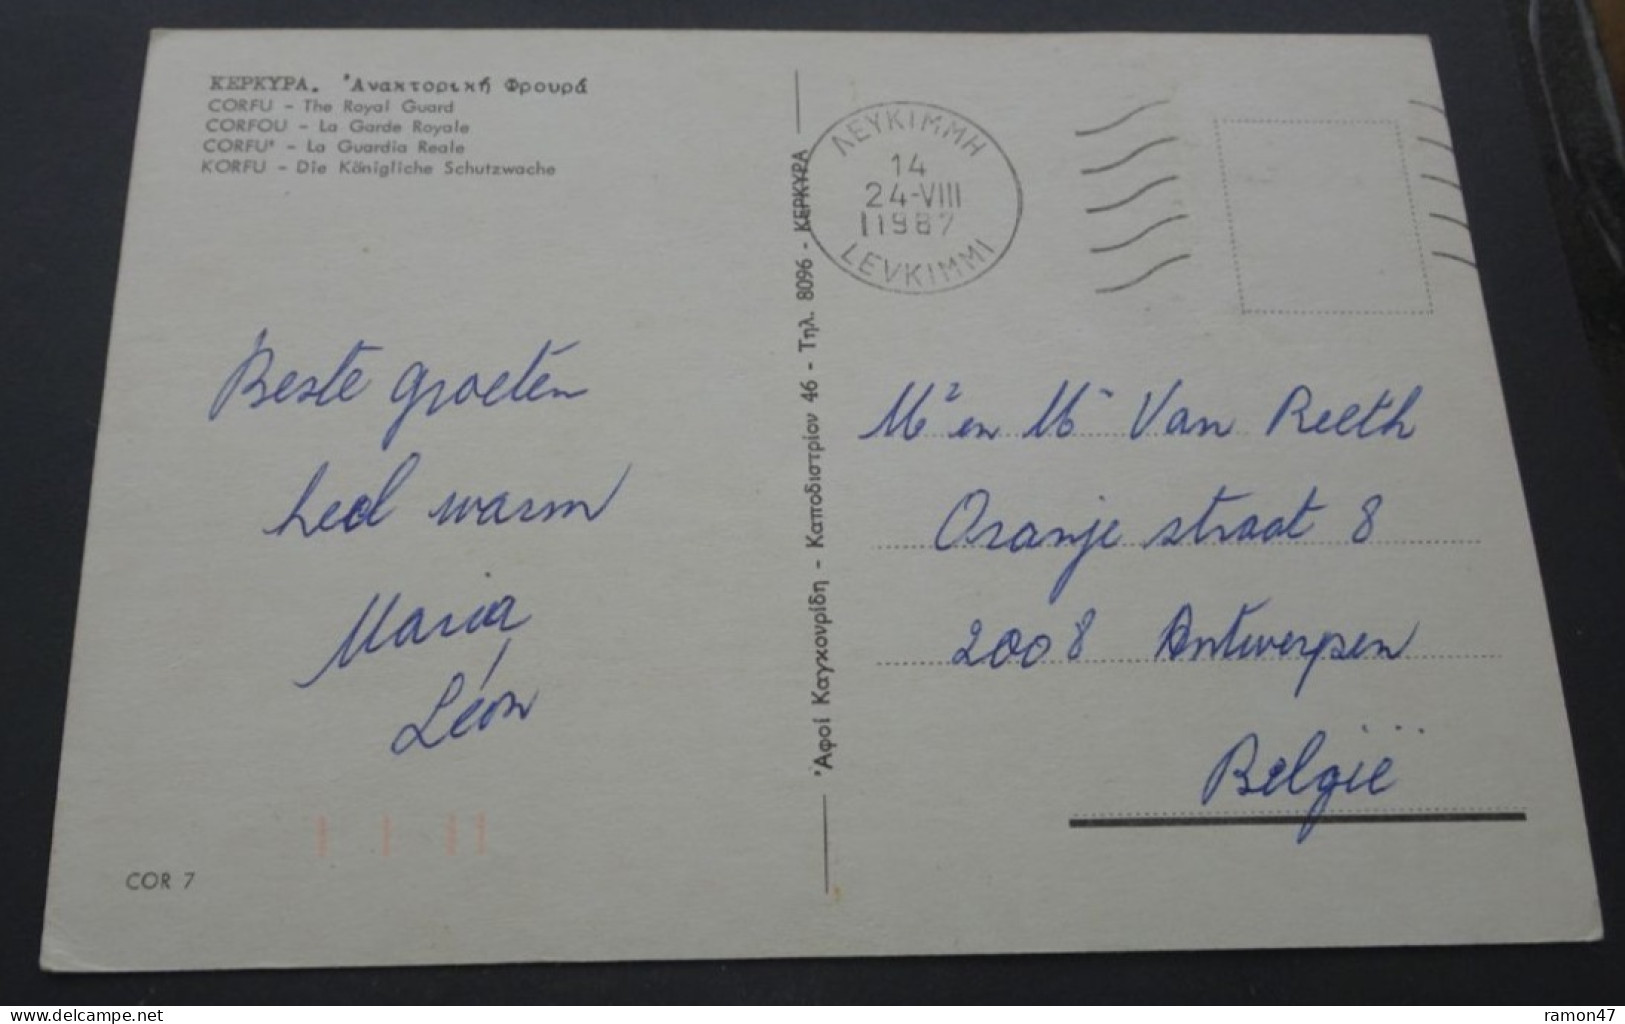 ΚΕΡΚΥΡΑ. 'Ανακτορική Φρουρά
CORFU - The Royal Guard
CORFOU - La Garde Royale
CORFU' - La Guardia Reale
KORFU - Die Königliche Schutzwache
Beste groeten
heel warm
Maria
Léon
COR 7
'Αφοί Καγκουρίδη - Καποδιστρίου 46 - Τηλ. 8096 - ΚΕΡΚΥΡΑ
ΛΕΥΚΙΜΜΗ
14
24-VIII
1987
LEVKIMMI
Mr en Mr Van Reeth
Oranje straat 8
2008 Antwerpen
België
www.delcampe.net
ramon47